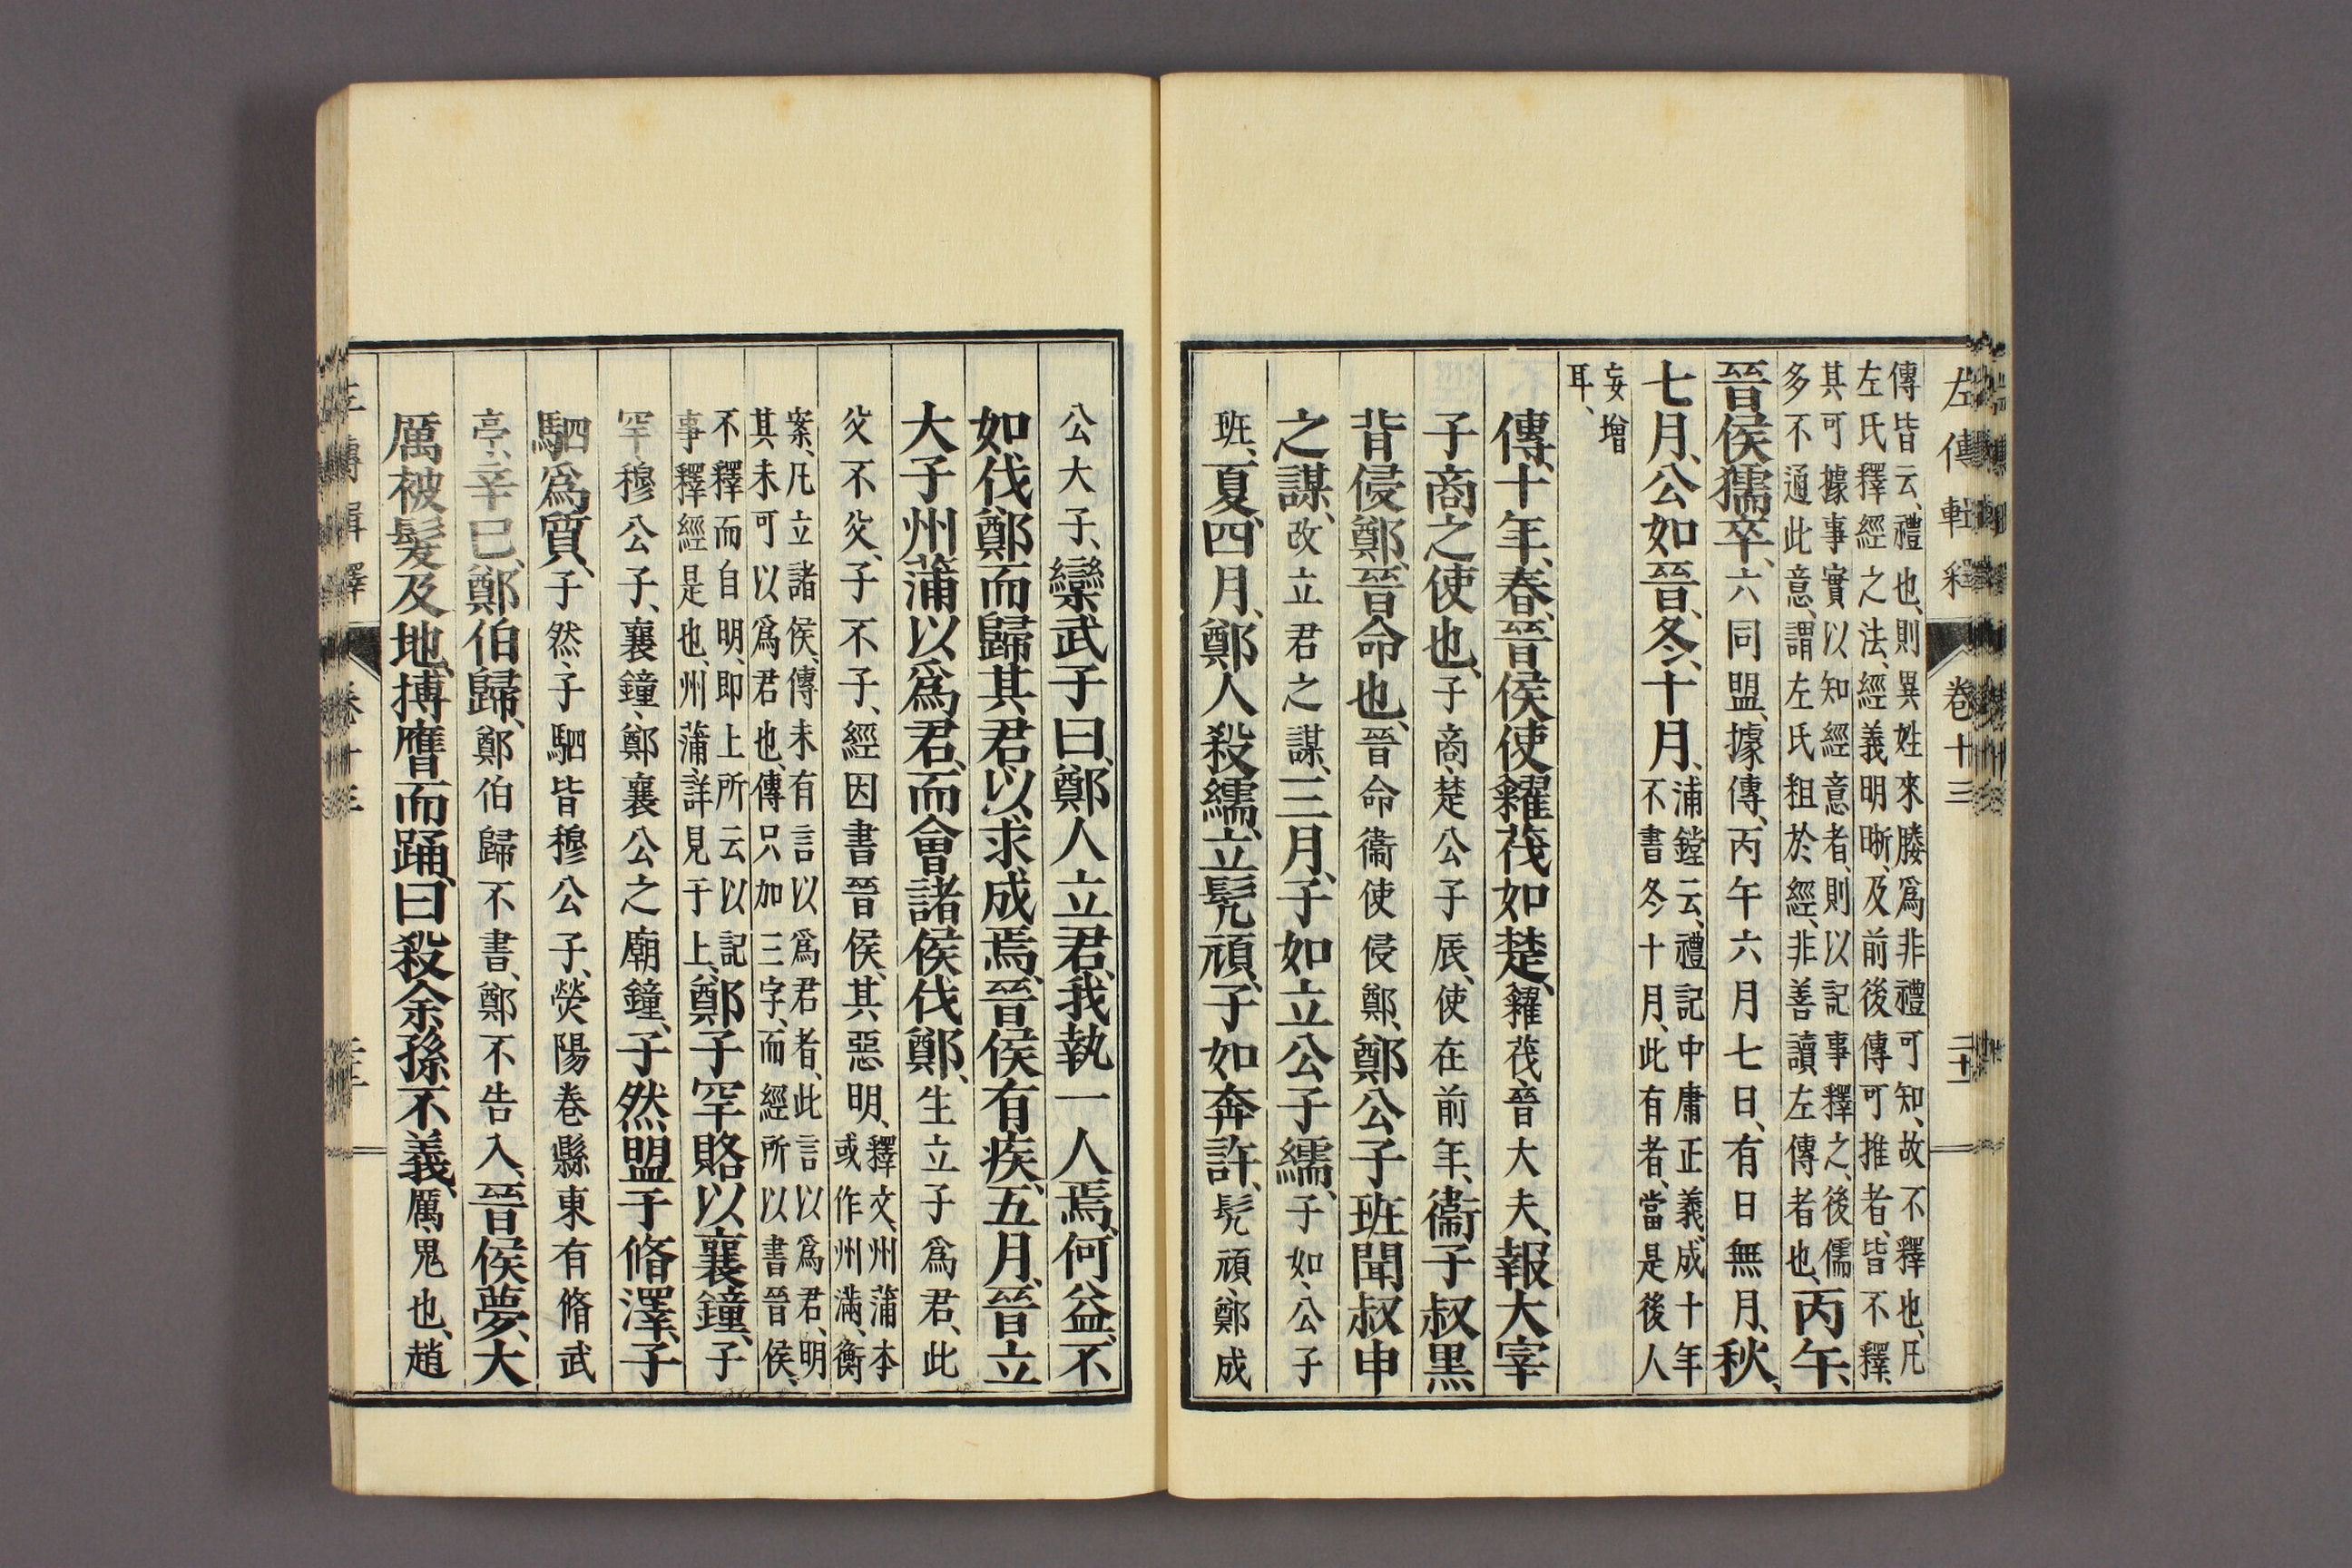 左傳輯釋 卷十三 二十一
傳皆云、禮也、則異姓來媵爲非禮可知、故不釋也、凡
左氏釋經之法、經義明晰、及前後傳可推者、皆不釋、
其可據事實以知經意者、則以記事釋之、後儒
多不通此意、謂左氏粗於經、非善讀左傳者也、丙午、
晉侯獳卒、六同盟、據傳、丙午六月七日、有日無月、秋、
七月、公如晉、冬、十月、浦鏜云、禮記中庸正義、成十年
不書冬十月、此有者、當是後人
妄增
耳、
傳、十年、春、晉侯使糴茷如楚、糴茷晉大夫、報大宰
子商之使也、子商、楚公子辰、使在前年、衞子叔黑
背侵鄭、晉命也、晉命衞使侵鄭、鄭公子班聞叔申
之謀、改立君之謀、三月、子如立公子繻、子如、公子
班、夏、四月、鄭人殺繻、立髡頑、子如奔許、髡頑、鄭成
公大子、欒武子曰、鄭人立君、我執一人焉、何益、不
如伐鄭而歸其君、以求成焉、晉侯有疾、五月、晉立
大子州蒲以爲君、而會諸侯伐鄭、生立子爲君、此
父不父、子不子、經因書晉侯、其惡明、釋文、州蒲本
或作州滿、衡
案、凡立諸侯、傳未有言以爲君者、此言以爲君、明
其未可以爲君也、傳只加三字、而經所以書晉侯、
不釋而自明、即上所云以記
事釋經是也、州蒲、詳見于上、鄭子罕賂以襄鐘、子
罕、穆公子、襄鐘、鄭襄公之廟鐘、子然盟于脩澤、子
駟爲質、子然、子駟皆穆公子、熒陽卷縣東有脩武
亭、辛巳、鄭伯歸、鄭伯歸不書、鄭不告入、晉侯夢、大
厲被髮及地、搏膺而踊、曰、殺余孫不義、厲、鬼也、趙